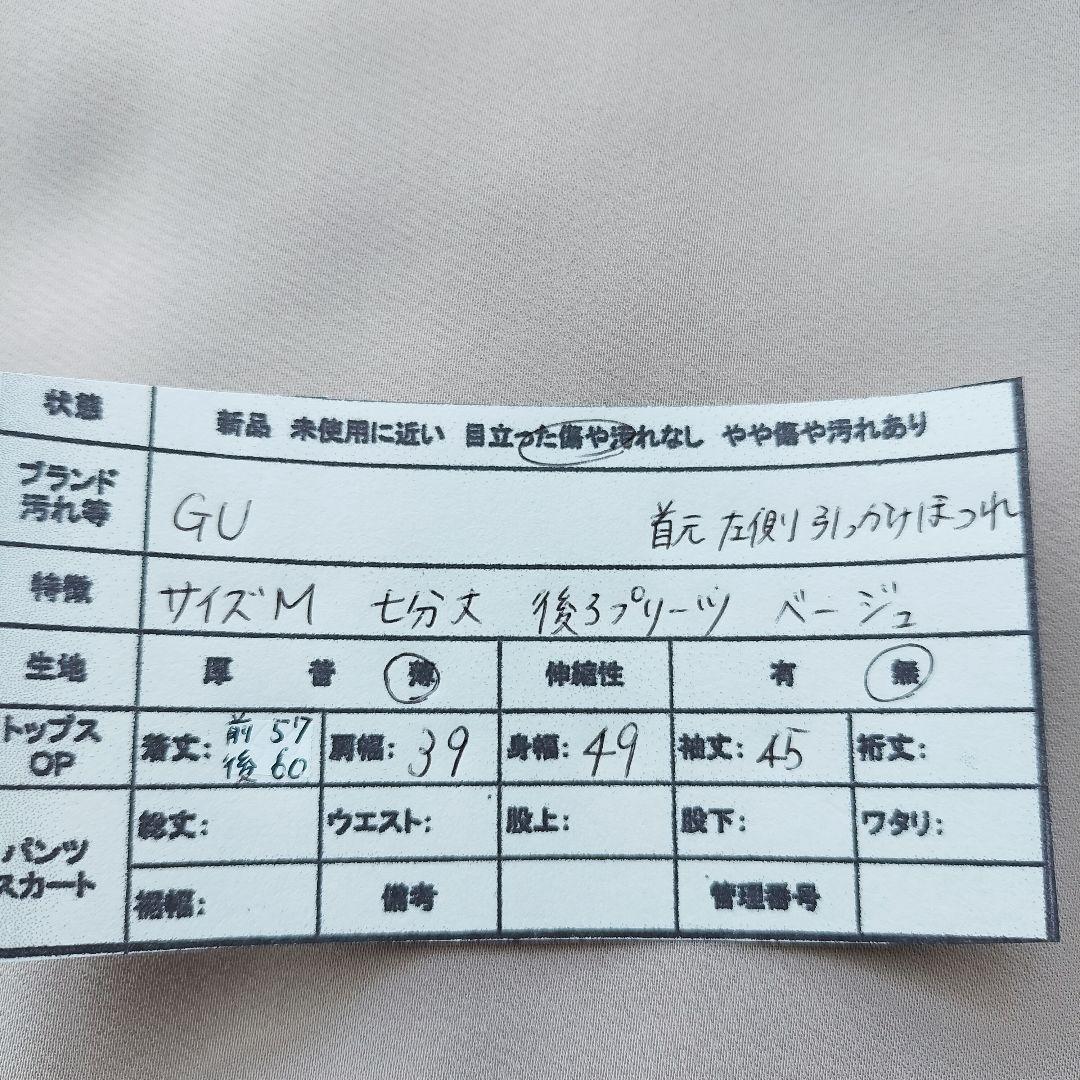 状態 新品 未使用に近い 目立った傷や汚れなし やや傷や汚れあり
ブランド 汚れ等 GU 首元 左側 引っかけほつれ
特徴 サイズM 七分丈 後ろプリーツ ベージュ
生地 厚 普 薄 伸縮性 有 無
トップス OP 着丈: 前 57 後 60 肩幅: 39 身幅: 49 袖丈: 45 裄丈:
パンツ スカート 総丈: ウエスト: 股上: 股下: ワタリ:
裾幅: 備考 管理番号